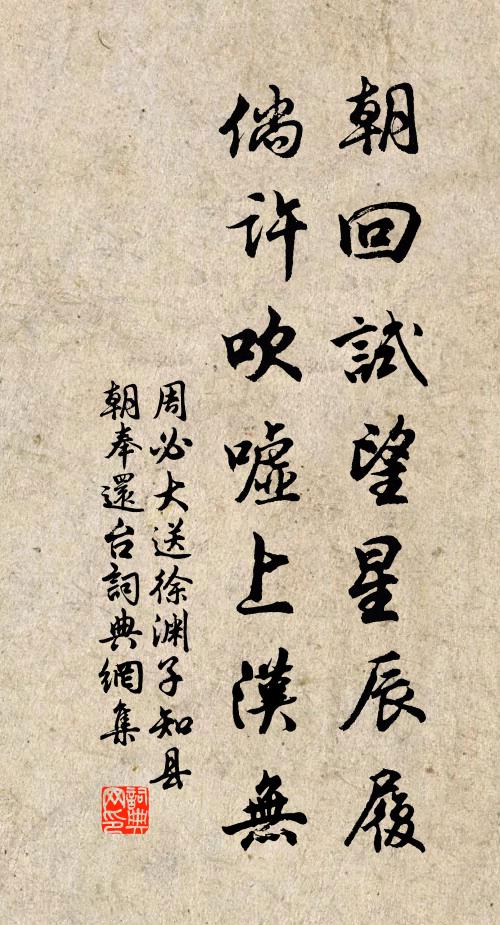 朝回試望星辰履
倘許吹噓上漢無
周必大送徐渊子知县
朝奉還台詞典網集
詞典网印